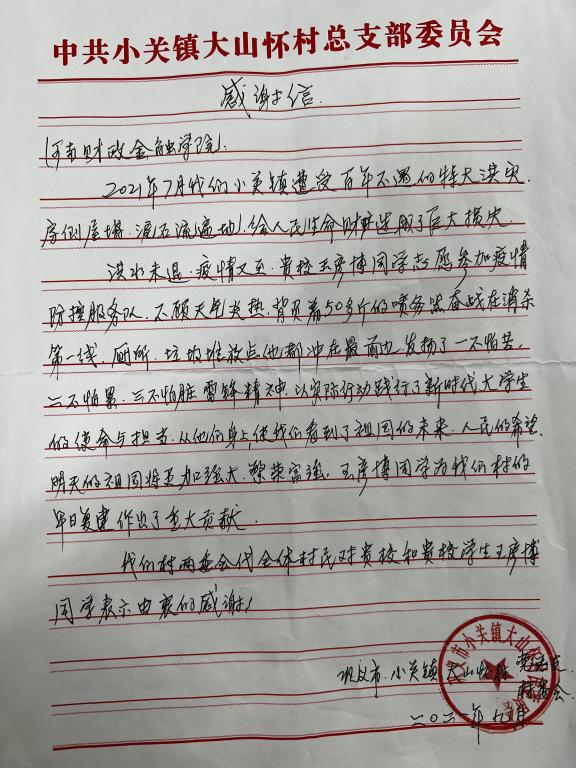 中共小关镇大山怀村总支部委员会
感谢信
财政金融学院:
2021年7月我们小关镇遭受百年不遇的特大洪灾
房倒屋塌、泥石流遍地,给人民生命财产造成了巨大损失。
洪水未退,疫情又至,贵校王彦博同学志愿参加疫情
防控服务队,不顾天气炎热,背负着50多斤的喷雾器奋战在消杀
第一线,厕所、垃圾堆放点他都冲在最前边,发扬了一不怕苦,
二不怕累,三不怕脏雷锋精神,以实际行动践行了新时代大学生
的使命与担当,从他们身上使我们看到了祖国的未来,人民的希望,
明天的祖国将更加强大,繁荣富强,王彦博同学为我们村的
重建作出了重大贡献。
我们村两委会代全体村民对贵校和贵校学生王彦博
同学表示由衷的感谢!
巩义市小关镇大山怀村党总支
村委会
二〇二一年九月